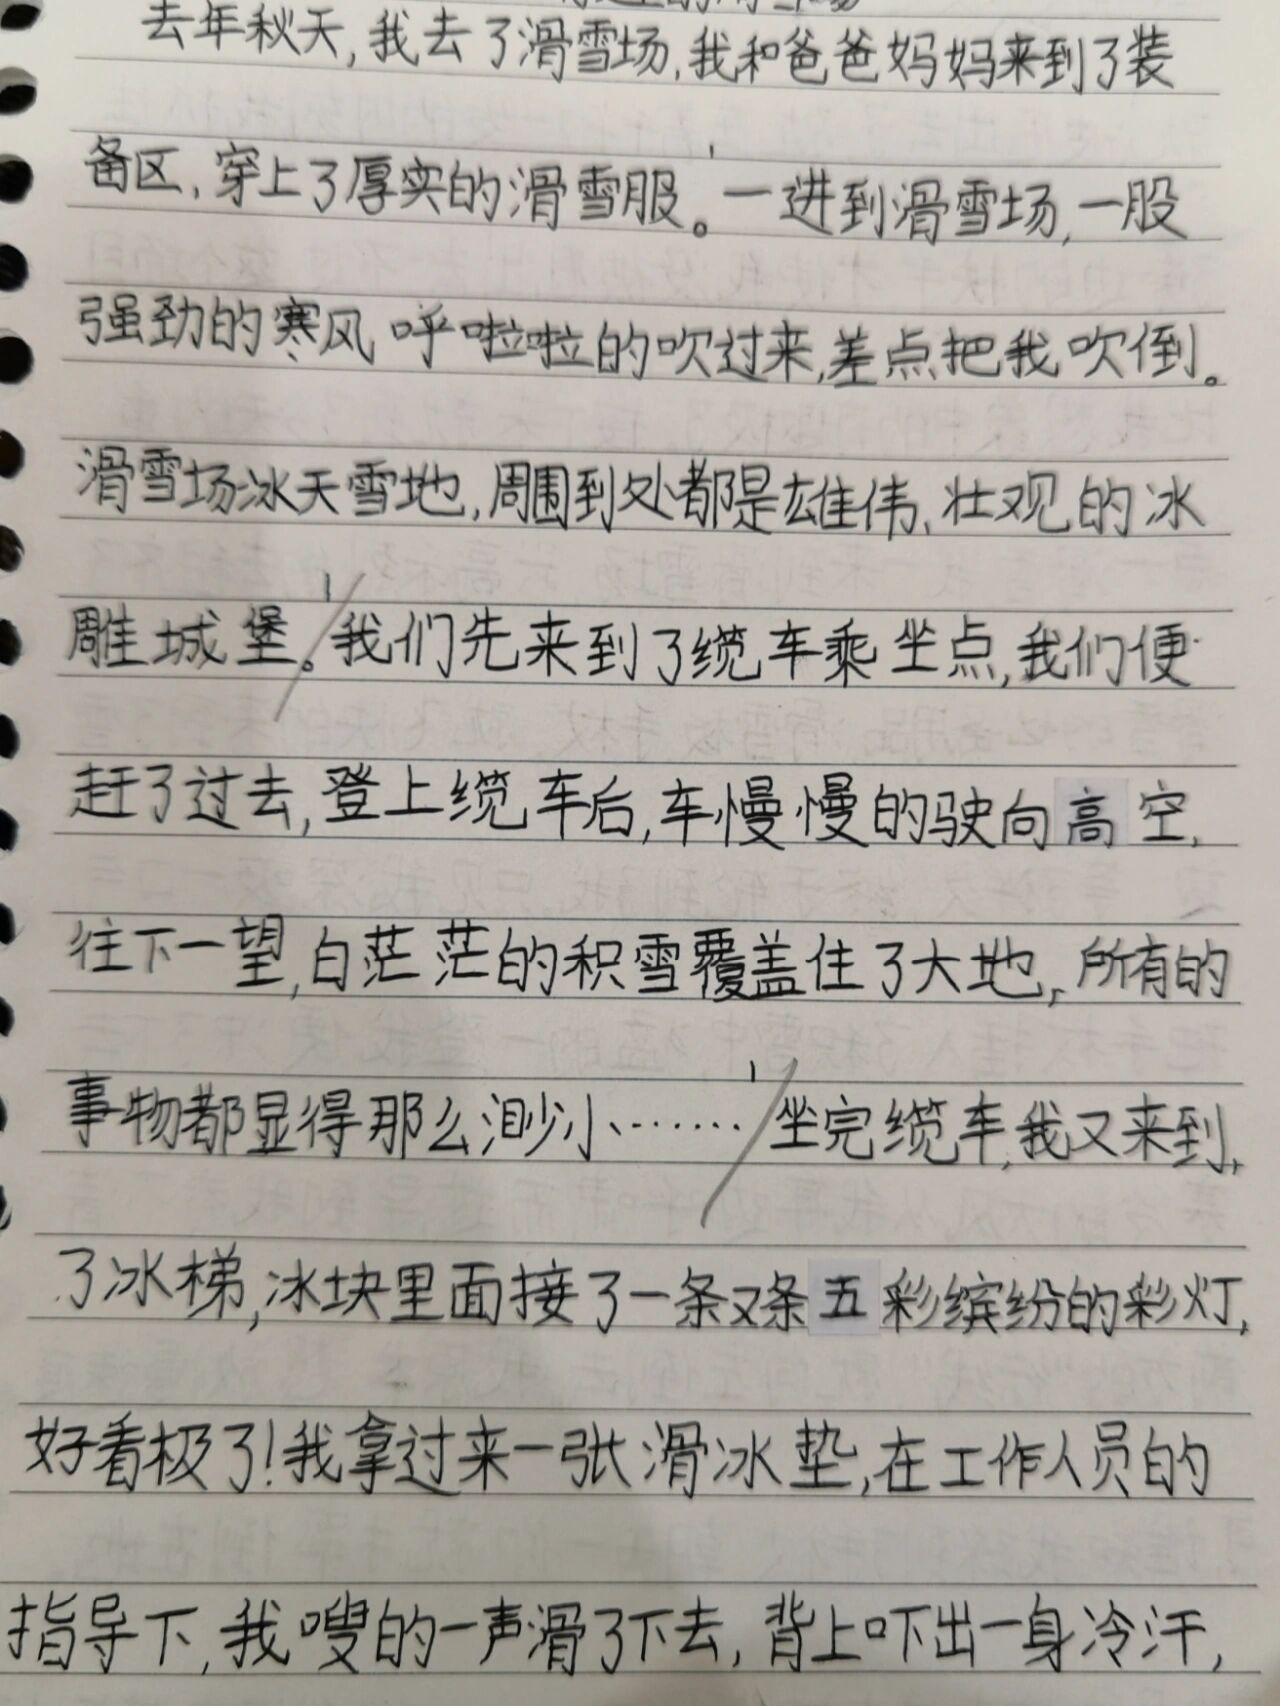 去年秋天,我去了滑雪场,我和爸爸妈妈来到了装
备区,穿上了厚实的滑雪服。一进到滑雪场,一股
强劲的寒风呼啦啦的吹过来,差点把我吹倒。
滑雪场冰天雪地,周围到处都是雄伟、壮观的冰
雕城堡。我们先来到了缆车乘坐点,我们便
赶了过去,登上缆车后,车慢慢的驶向高空,
往下一望,白茫茫的积雪覆盖住了大地,所有的
事物都显得那么渺小……坐完缆车,我又来到,
了冰梯,冰块里面接了一条又条五彩缤纷的彩灯,
好看极了!我拿过来一张滑冰垫,在工作人员的
指导下,我嗖的一声滑了下去,背上吓出一身冷汗,